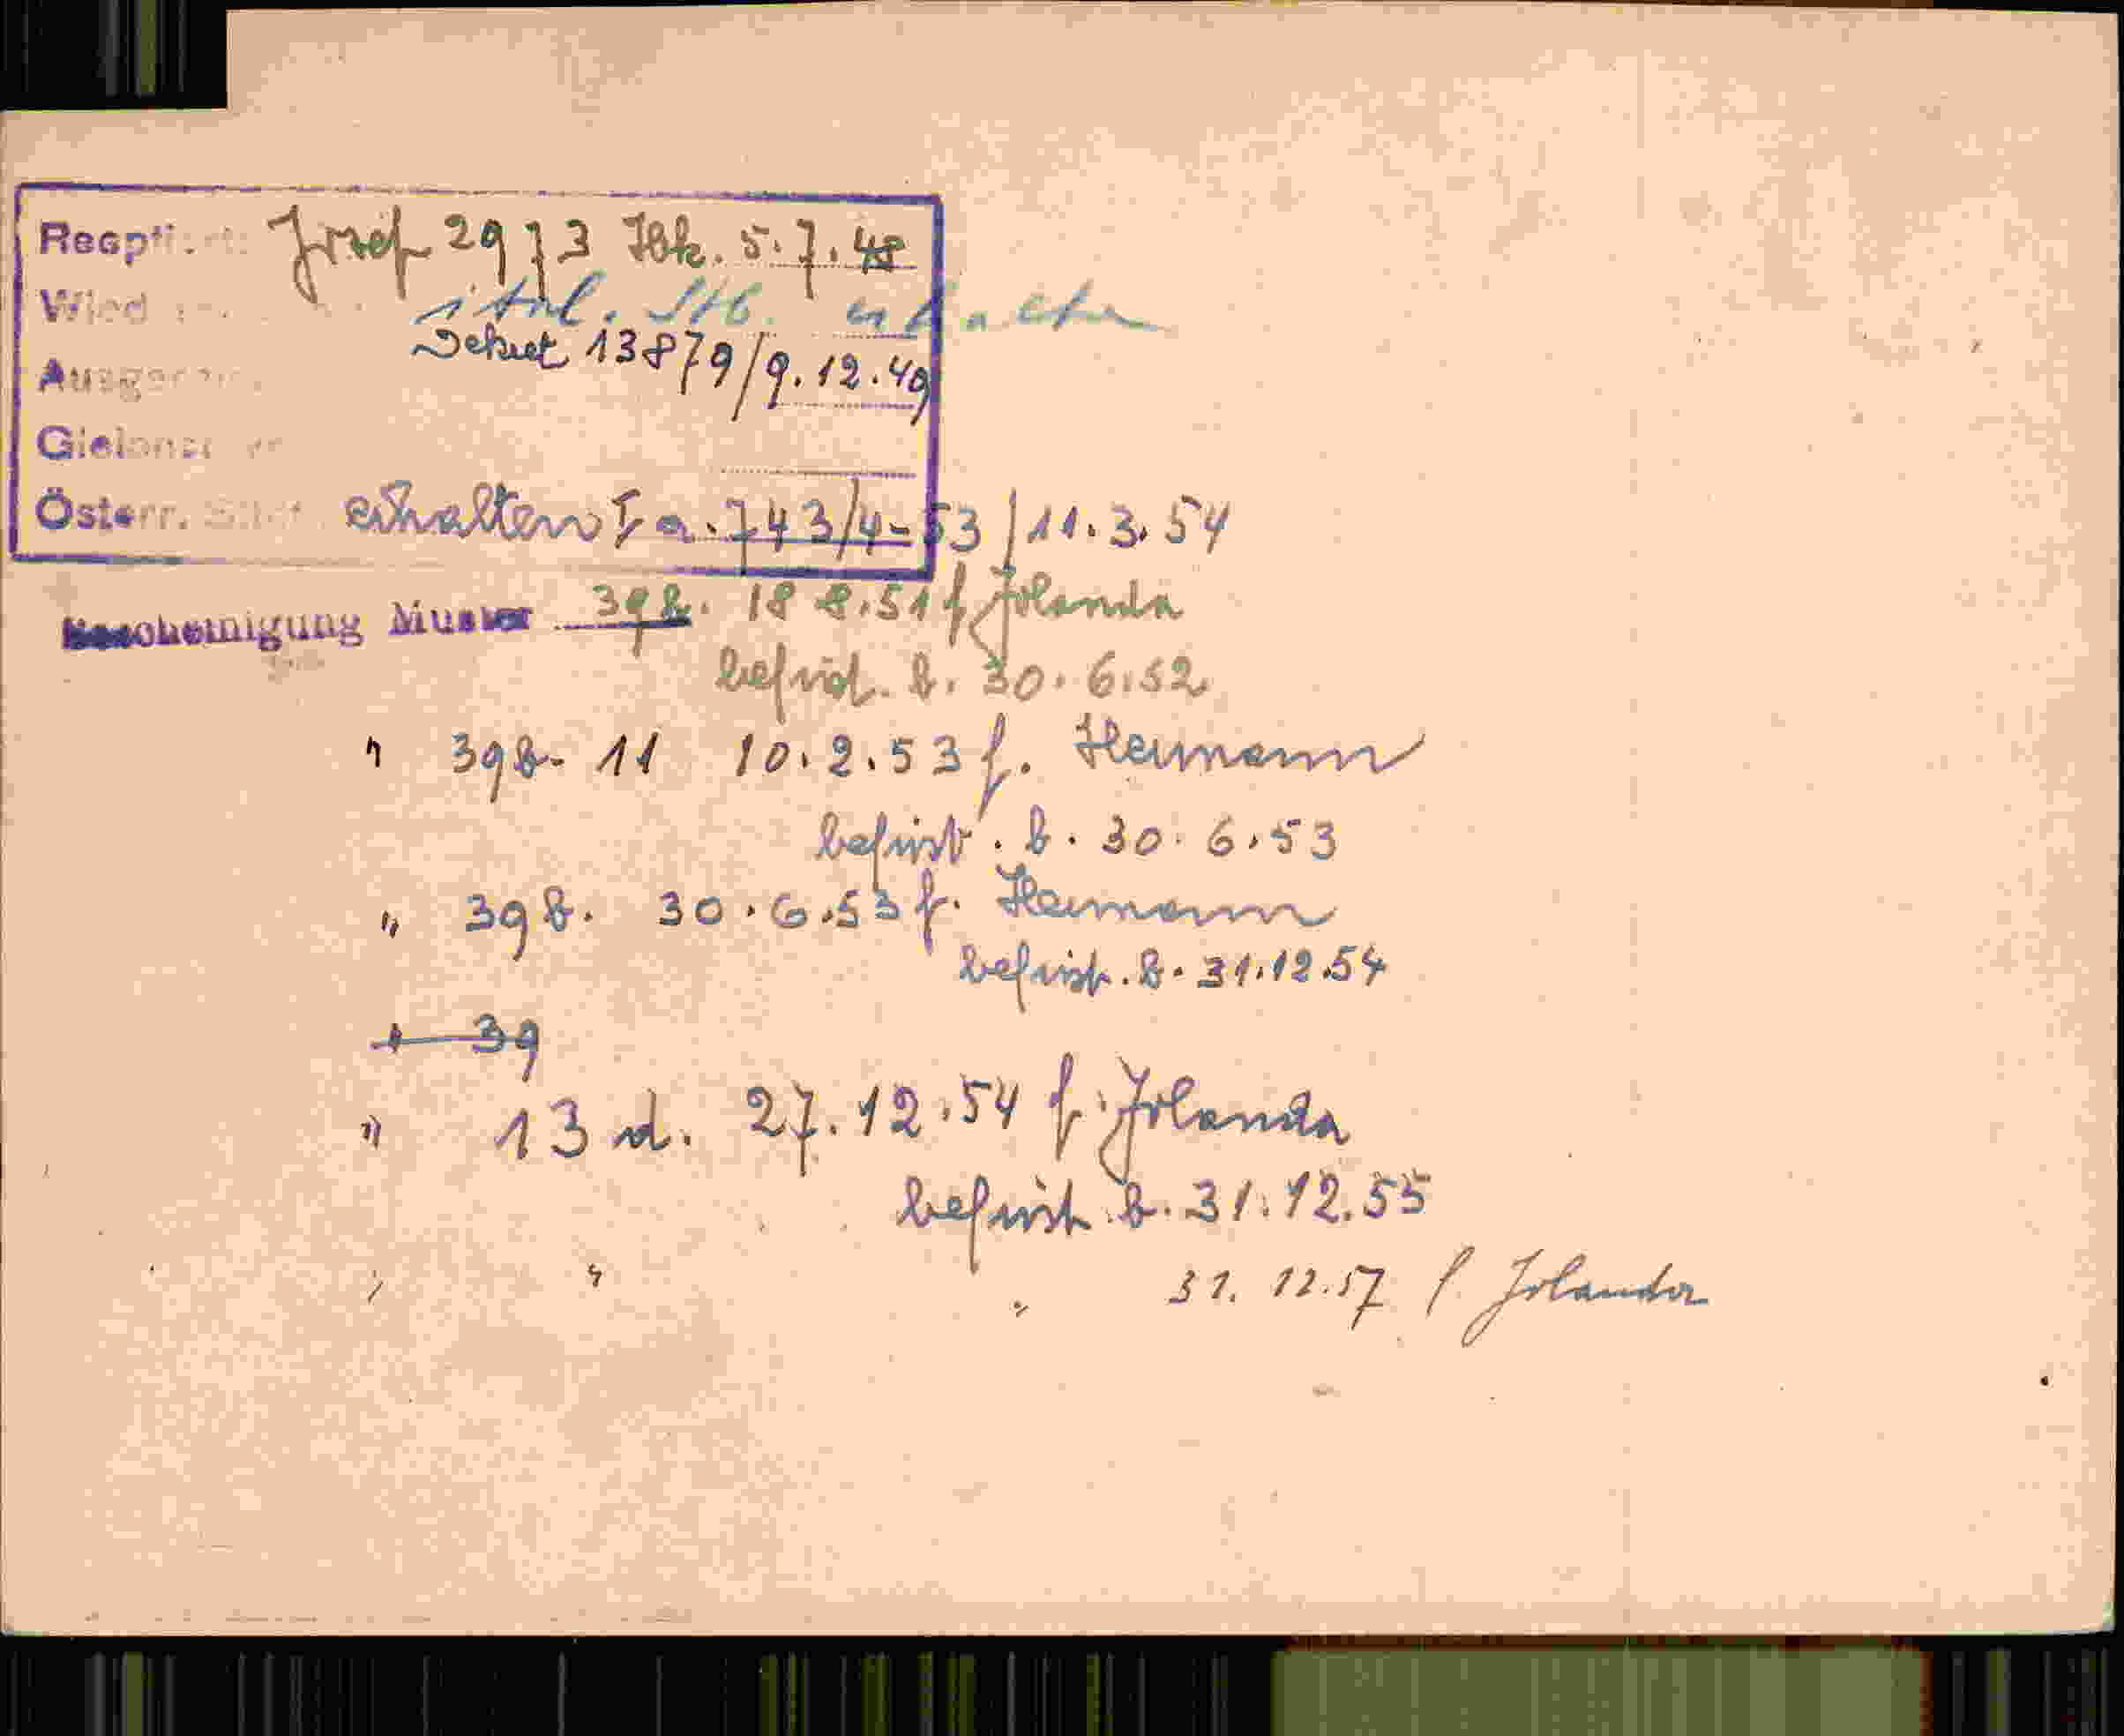 Josef 2973 Ibk. 5.7.48
ital. Stb. erhalten
Dekret 13879/9.12.49
Österr. erhalten I a. 743/4-53/11.3.54
Bescheinigung Muster 39b. 18 8.51 f. Jolanda
befrist. b. 30.6.52
" 39b. 11 10.2.53 f. Hermann
befrist. b. 30.6.53
" 39b. 30.6.53 f. Hermann
befrist. b. 31.12.54
" 39
" 13 d. 27.12.54 f. Jolanda
befrist. b. 31.12.55
" " " 31.12.57 f. Jolanda